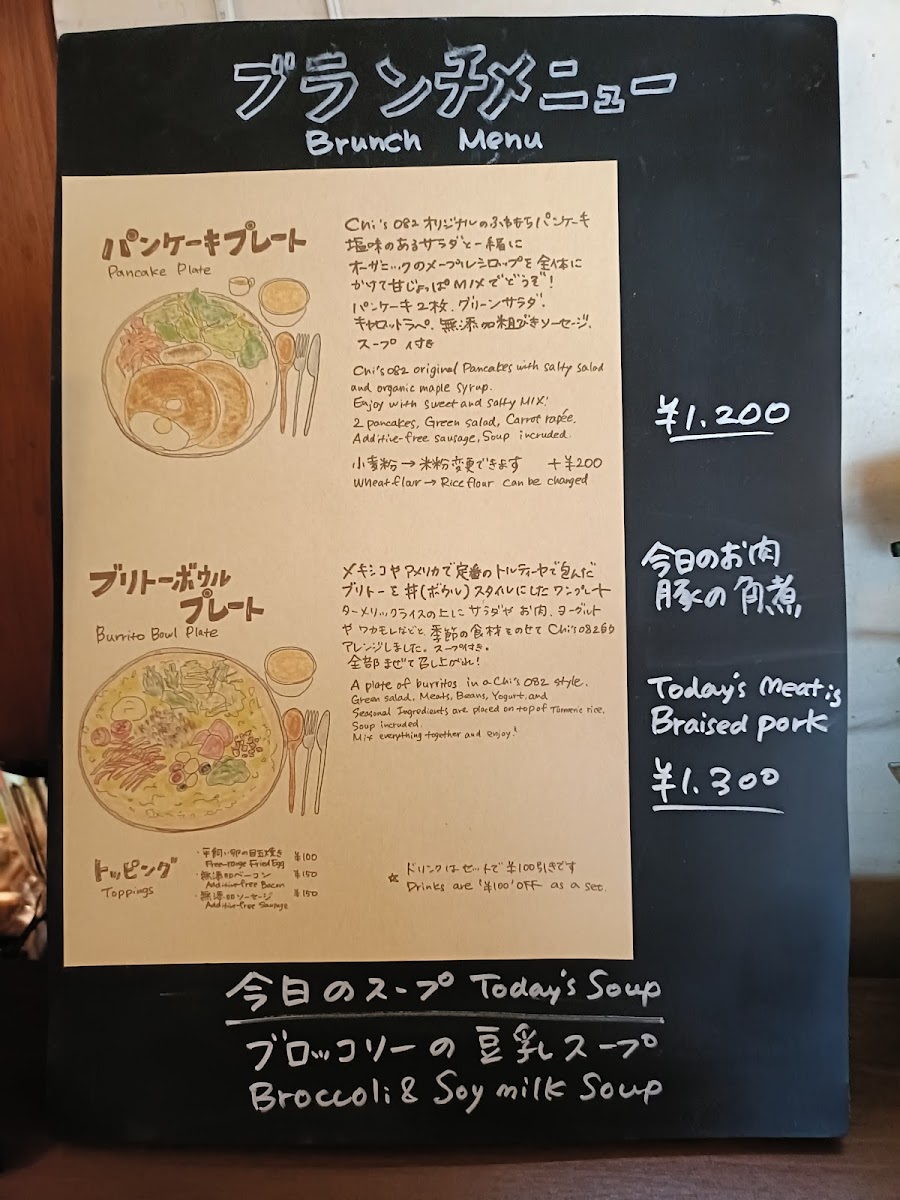 ブランチメニュー
Brunch Menu
パンケーキプレート
Pancake Plate
Chi's 082 オリジナルのふわもちパンケーキ
塩味のあるサラダと一緒に
オーガニックのメープルシロップを全体に
かけて甘じょっぱMIXでどうぞ!
パンケーキ2枚、グリーンサラダ、
キャロットラペ、無添加粗びきソーセージ、
スープ付き
Chi's 082 original Pancakes with salty salad
and organic maple syrup.
Enjoy with sweet and salty MIX!
2 pancakes, Green salad, Carrot rapée,
Additive-free sausage, Soup incruded.
小麦粉→米粉変更できます +¥200
Wheat flair → Rice flour can be changed
¥1.200
ブリトーボウル
プレート
Burrito Bowl Plate
メキシコやアメリカで定番のトルティーヤで包んだ
ブリトーを丼(ボウル)スタイルにしたワンプレート
ターメリックライスの上にサラダやお肉、ヨーグルト
やワカモレなどと、季節の食材をのせてChi's082らしく
アレンジしました。スープ付き。
全部まぜて召し上がれ!
A plate of burritos in a Chi's 082 style.
Green salad, Meats, Beans, Yogurt, and
Seasonal Ingredients are placed on top of Turmeric rice.
Soup incruded.
Mix everything together and enjoy!
今日のお肉
豚の角煮
Today's meat is
Braised pork
¥1.300
トッピング
Toppings
・平飼い卵の目玉焼き ¥100
Free-range Fried Egg
・無添加ベーコン ¥150
Additive-free Bacon
・無添加ソーセージ ¥150
Additive-free Sausage
☆ ドリンクはセットで¥100引きです
Drinks are '¥100' OFF as a set.
今日のスープ Today's Soup
ブロッコリーの豆乳スープ
Broccoli & Soy milk Soup